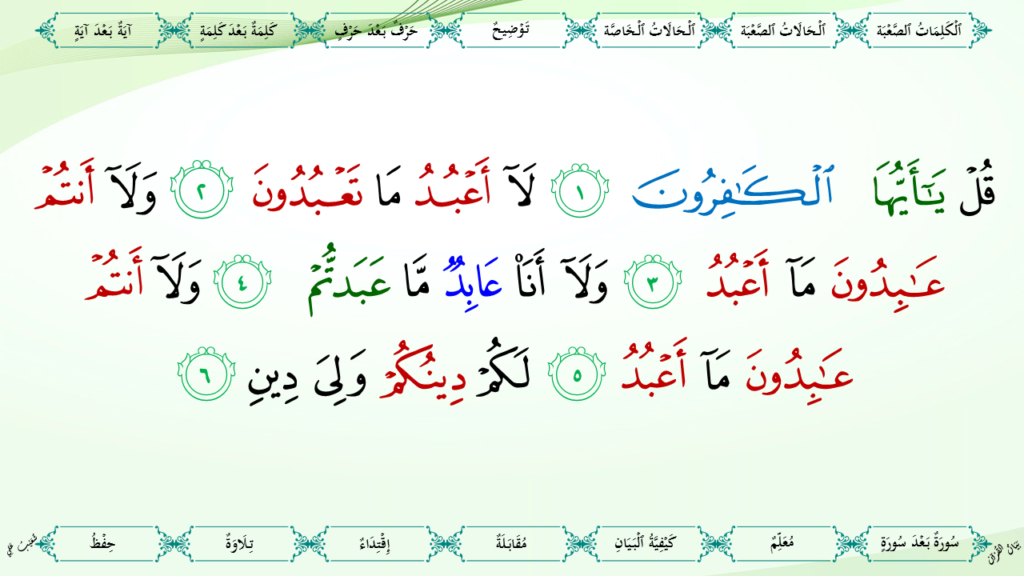 ٱلْكَلِمَاتُ ٱلصَّعْبَة ٱلْحَالَاتُ ٱلصَّعْبَة ٱلْحَالَاتُ ٱلْخَاصَّة تَوْضِيحٌ حَرْفٌ بَعْدَ حَرْفٍ كَلِمَةٌ بَعْدَ كَلِمَةٍ آيَةٌ بَعْدَ آيَةٍ
قُلْ يَـٰٓأَيُّهَا ٱلْكَـٰفِرُونَ ١ لَآ أَعْبُدُ مَا تَعْبُدُونَ ٢ وَلَآ أَنتُمْ
عَـٰبِدُونَ مَآ أَعْبُدُ ٣ وَلَآ أَنَا۠ عَابِدٌ مَّا عَبَدتُّمْ ٤ وَلَآ أَنتُمْ
عَـٰبِدُونَ مَآ أَعْبُدُ ٥ لَكُمْ دِينُكُمْ وَلِىَ دِينِ ٦
سُورَةٌ بَعْدَ سُورَةٍ مُعَلِّمٌ كَيْفِيَّةُ ٱلْبَيَانِ مُقَابَلَةٌ إِقْتِدَاءٌ تِلَاوَةٌ حِفْظُ